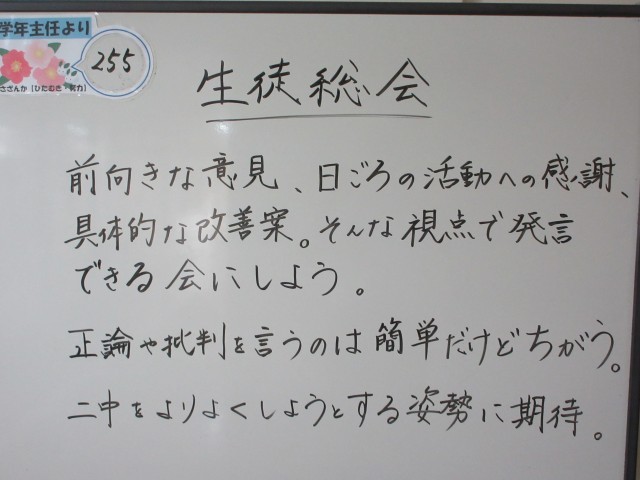 学年主任より
255
さざんか［ひたむき・努力］
生徒総会
前向きな意見、日ごろの活動への感謝、
具体的な改善案。そんな視点で発言
できる会にしよう。
正論や批判を言うのは簡単だけどちがう。
二中をよりよくしようとする姿勢に期待。